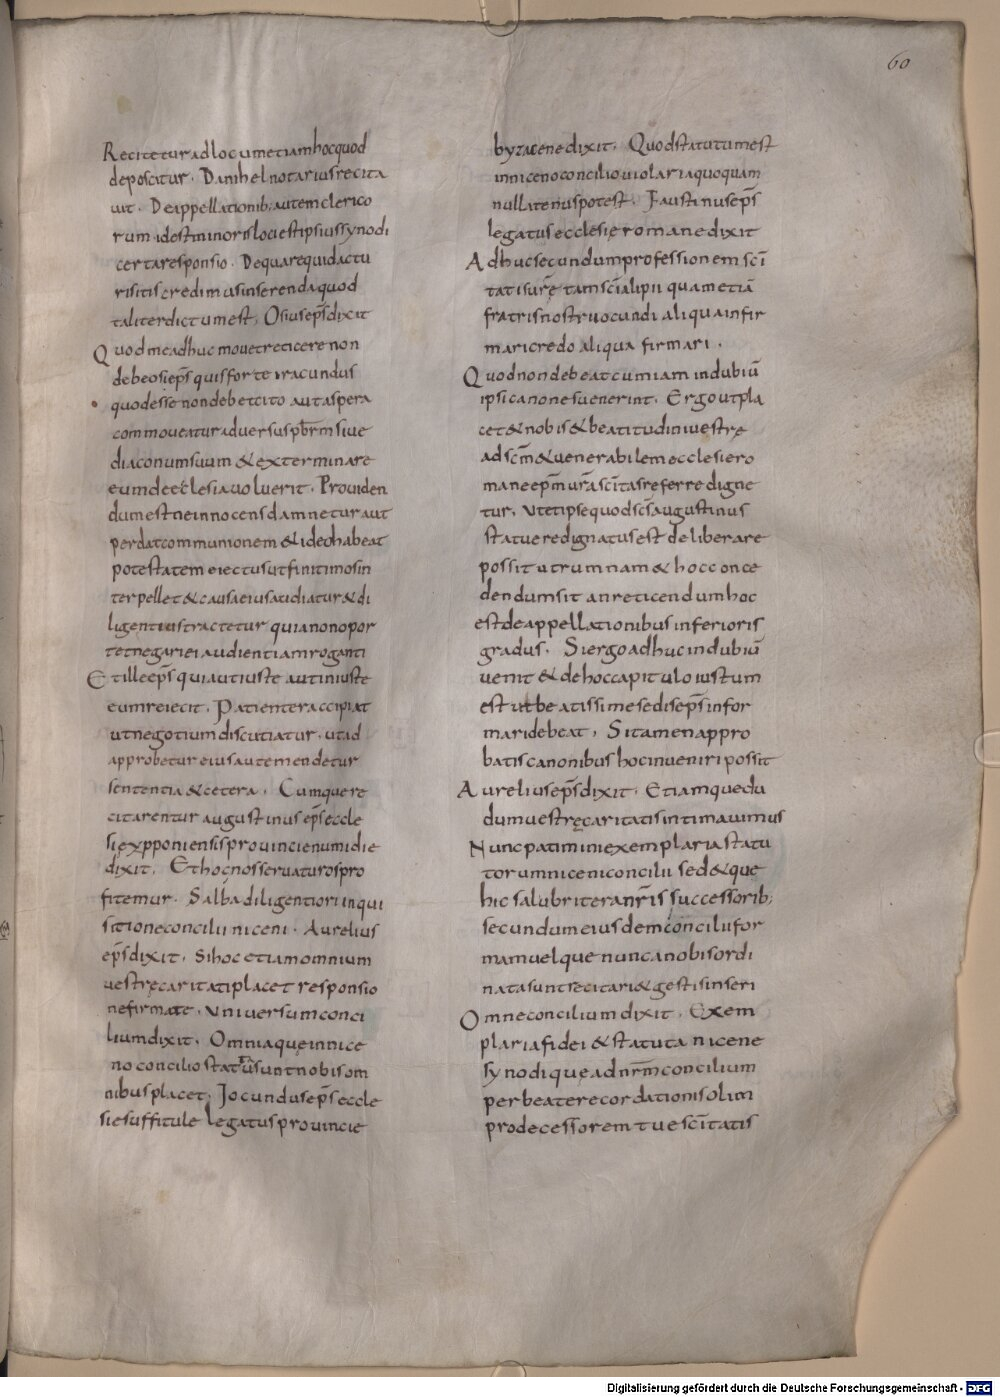 60
Recitetur ad locum etiam hoc quod
deposcitur. Danihel notarius recita
uit. De appellationib; autem clerico
rum idest minoris loci est ipsius synodi
certa responsio. De qua re quid actu
ri sitis credimus inserenda quod
taliter dictum est; Osius ep̄s dixit
Quod me adhuc mouet reticere non
debeo si ep̄s quis forte iracundus
quod esse non debet cito aut aspera
commoueatur aduersus pb̄rm siue
diaconum suum & exterminare
eum de ecclesia uoluerit. Prouiden
dum est ne innocens damnetur aut
perdat communionem & ideo habeat
potestatem eiectus ut finitimos in
terpellet & causa eius audiatur & di
ligentius tractetur quia non opor
tet negari ei audientiam roganti
Et ille ep̄s qui aut iuste aut iniuste
eum reiecit. Patienter accipiat
ut negotium discutiatur. ut ad
approbetur eius aut emendetur
sententia & cetera. Cumque re
citarentur augustinus ep̄s eccle
sie ypponiensis prouincie numidie
dixit. Et hoc nos seruaturos pro
fitemur. Salba diligentiori inqui
sitione concilii niceni. Aurelius
ep̄s dixit. Si hoc etiam omnium
uestrę caritati placet responsio
ne firmate. Uniuersum conci
lium dixit. Omnia que in nice
no concilio statuta sunt nobis om
nibus placet. Jocundus ep̄s eccle
sie suffitule legatus prouincie
byzacene dixit. Quod statutum est
in niceno concilio uiolari a quoquam
nullatenus potest. Faustinus ep̄s
legatus ecclesię romane dixit
Adhuc secundum professionem sc̄i
tatis ur̄ę tam sc̄i alipii quam etiā
fratris nostri iocundi aliqua infir
mari credo aliqua firmari.
Quod non debeat cum iam in dubiū
ipsi canones uenerint. Ergo ut pla
cet & nobis & beatitudini uestrę
ad sc̄m & uenerabilem ecclesie ro
mane ep̄m ur̄a sc̄itas referre digne
tur. Ut et ipse quod sc̄s augustinus
statuere dignatus est deliberare
possit utrumnam & hoc conce
dendum sit an reticendum hoc
est de appellationibus inferioris
gradus. Si ergo adhuc in dubiū
uenit & de hoc capitulo iustum
est ut beatissime sedis ep̄s infor
mari debeat. Si tamen appro
batis canonibus hoc inueniri possit
Aurelius ep̄s dixit. Etiam quedu
dum uestrę caritatis intimauimus
Nunc patimini exemplaria statu
torum niceni concilii sed & que
hic salubriter a nr̄is successorib;
secundum eiusdem concilii for
mam uel que nunc a nobis ordi
nata sunt recitari & gestis inseri
Omne concilium dixit. Exem
plaria fidei & statuta nicene
synodi quę ad nr̄m concilium
per beate recordationis olim
prodecessorem tue sc̄itatis
Digitalisierung gefördert durch die Deutsche Forschungsgemeinschaft - DFG